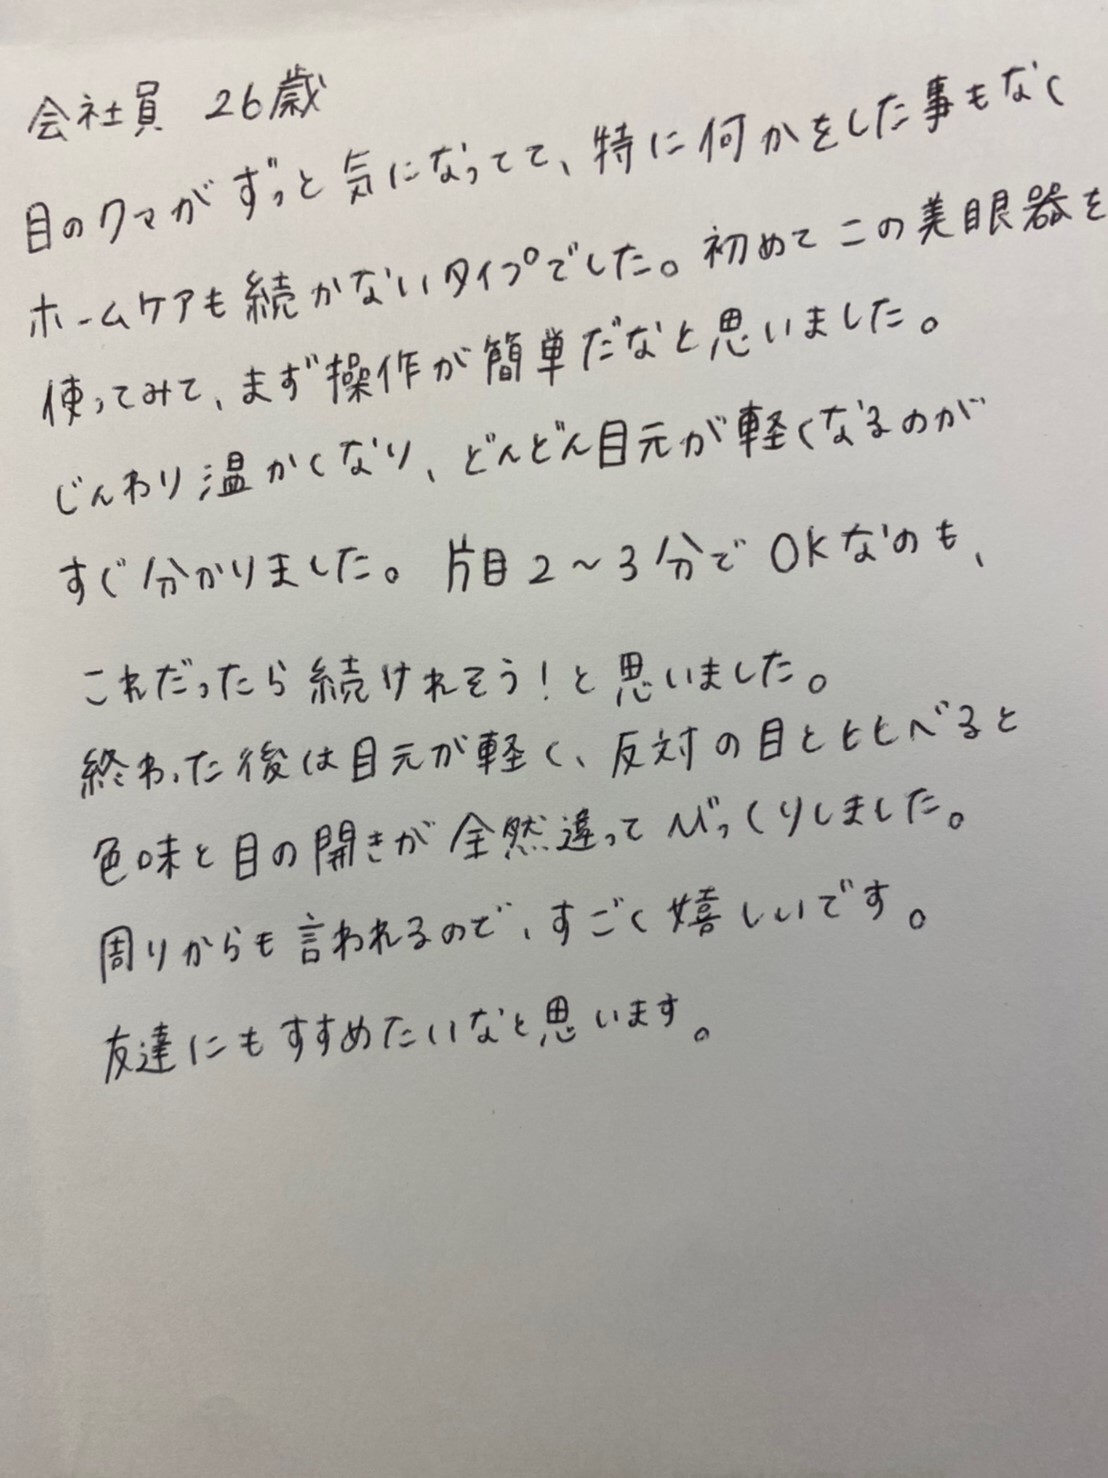 会社員 26歳
目のクマがずっと気になってて、特に何かをした事もなく
ホームケアも続かないタイプでした。初めてこの美眼器を
使ってみて、まず操作が簡単だなと思いました。
じんわり温かくなり、どんどん目元が軽くなるのが
すぐ分かりました。片目2〜3分でOKなのも、
これだったら続けれそう!と思いました。
終わった後は目元が軽く、反対の目とヒヒべると
色味と目の開きが全然違ってびっくりしました。
周りからも言われるので、すごく嬉しいです。
友達にもすすめたいなと思います。